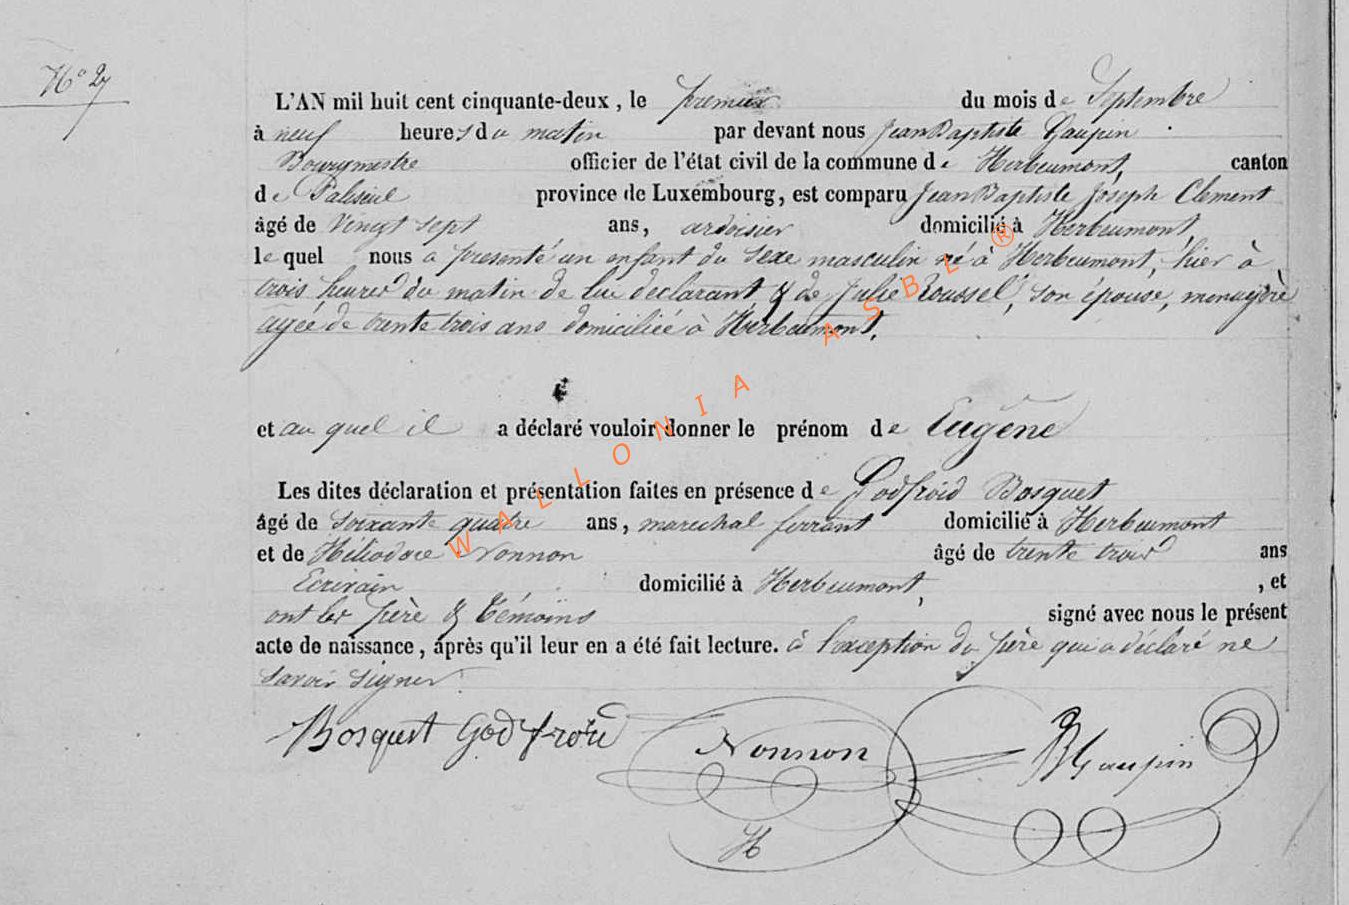 N° 27
L'AN mil huit cent cinquante-deux, le premier du mois de Septembre
à neuf heures du matin par devant nous Jean Baptiste Gaupin
Bourgmestre officier de l'état civil de la commune de Herbeumont, canton
de Paliseul province de Luxembourg, est comparu Jean Baptiste Joseph Clement
âgé de Vingt sept ans, ardoisier domicilié à Herbeumont,
le quel nous a presenté un enfant du sexe masculin né à Herbeumont, hier à
trois heures du matin de lui déclarant & de Julie Roussel, son épouse, menagère
agée de trente trois ans domiciliée à Herbeumont.
et au quel il a déclaré vouloir donner le prénom de Eugène
Les dites déclaration et présentation faites en présence de Godfroid Bosquet
âgé de soixante quatre ans, marechal ferrant domicilié à Herbeumont
et de Héliodore Nonnon âgé de trente trois ans
Ecrivain domicilié à Herbeumont, , et
ont les père & témoins signé avec nous le présent
acte de naissance, après qu'il leur en a été fait lecture. à l'exception du père qui a déclaré ne
savoir signer.
Bosquet Godfroid Nonnon JBGaupin
H
WALLONIA ASBL ®